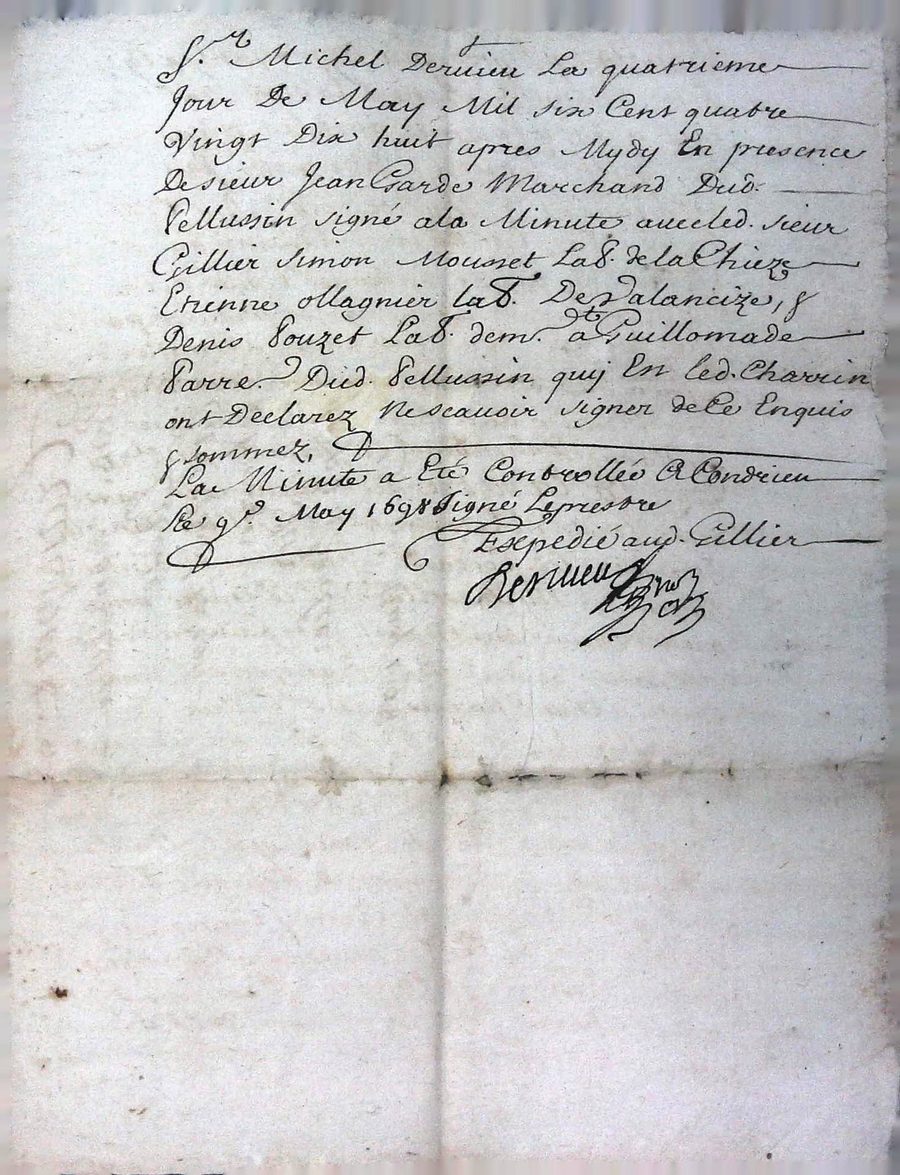 S.r Michel Dervieu La quatrieme
Jour De May Mil six Cent quatre
Vingt Dix huit apres Mydy En presence
De sieur Jean Garde Marchand Dud.
Pellussin signé ala Minute avec led. sieur
Gillier Simon Mousset Lab. de la Chieze
Etienne ollagnier lab. De Valancize, &
Denis Pouzet Lab. dem.t a Guillomade
Parre. Dud. Pellussin quj En led. Charrin
ont Declarez Ne scavoir signer de Ce Enquis
& sommez,
La Minute a Eté Controllée A Condrieu
Le 9e. May 1698 Signé Leprestre
Expedié aud. Gillier
Dervieu